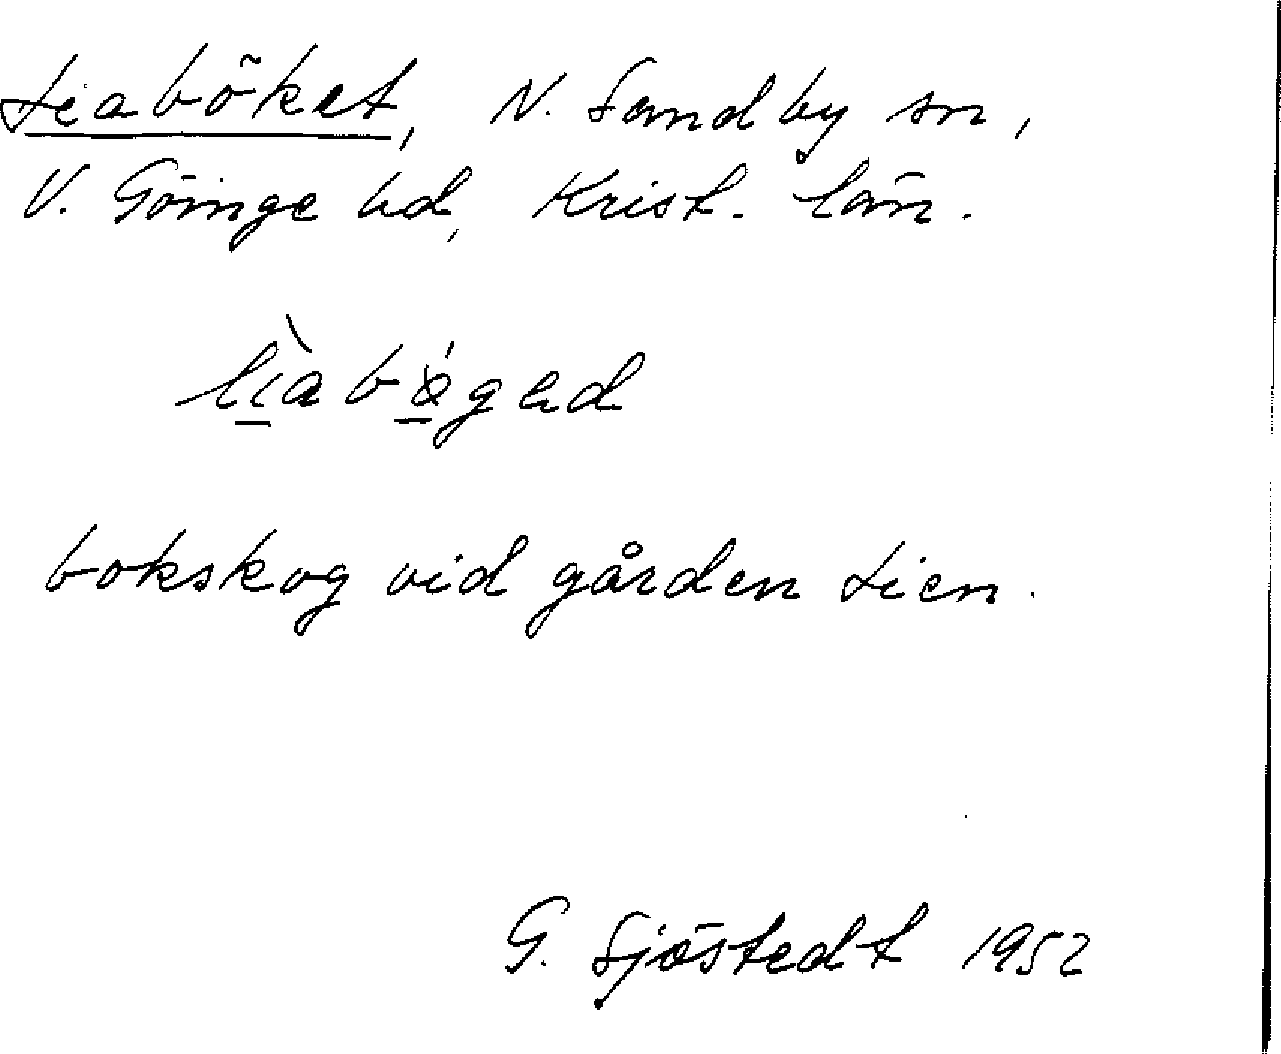 Liaböket, N. Sandby sn,
V. Göinge hd, Krist. län.
lìabø̀gəd
bokskog vid gården Lien.
G. Sjöstedt 1952